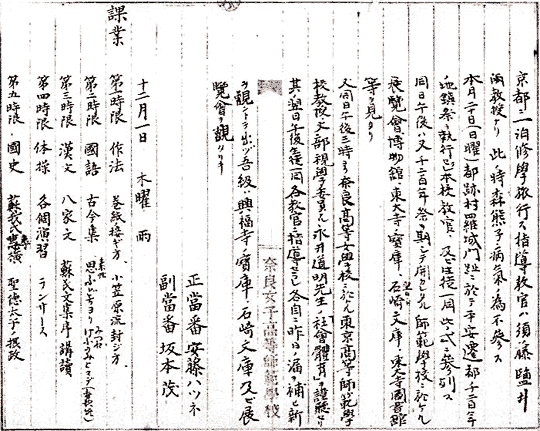 京都ニ一泊修學旅行ス指導教官ハ須藤鹽井
両教授ナリ 此ノ時森熊子病氣ノ為不参ス
本月二十日(日曜)都跡村羅城門趾ニ於テ平安遷都千二百年
地鎮祭ノ執行アリ本校教官及ビ生徒一同此ノ式ニ参列ス
同日午後ハ又千二百年祭ヲ期シテ開カレタル師範學校ニ於ケル
展覧會博物館東大寺ノ寶庫、石崎文庫、東大寺圖書館
等ヲ見タリ
又同日午後三時ヨリ奈良高等女學校ニ於テ東京高等師範學
校教授文部視學委員永井道明先生ノ「社會體育」ヲ謹聴セリ
其ノ翌日午後生徒一同各教官ノ指導ニヨリ各自ニ昨日ノ漏ヲ補ヒ新
ヲ觀ントテ出ヅ吾級ハ興福寺ノ寶庫、石崎文庫及ビ展
覧會ヲ觀タリキ
奈良女子高等師範學校
正當番 安藤ハツネ
副當番 坂本茂
十二月一日 木曜 雨
課業
第一時限 作法 巻紙接ギ方、小笠原流封ジ方
第二時限 國語 古今集
第三時限 漢文 八家文 蘇氏文集序 講讀
第四時限 体操 各個演習 ランサース
第五時限 國史 蘇我氏ノ専横 聖徳太子ノ摂政